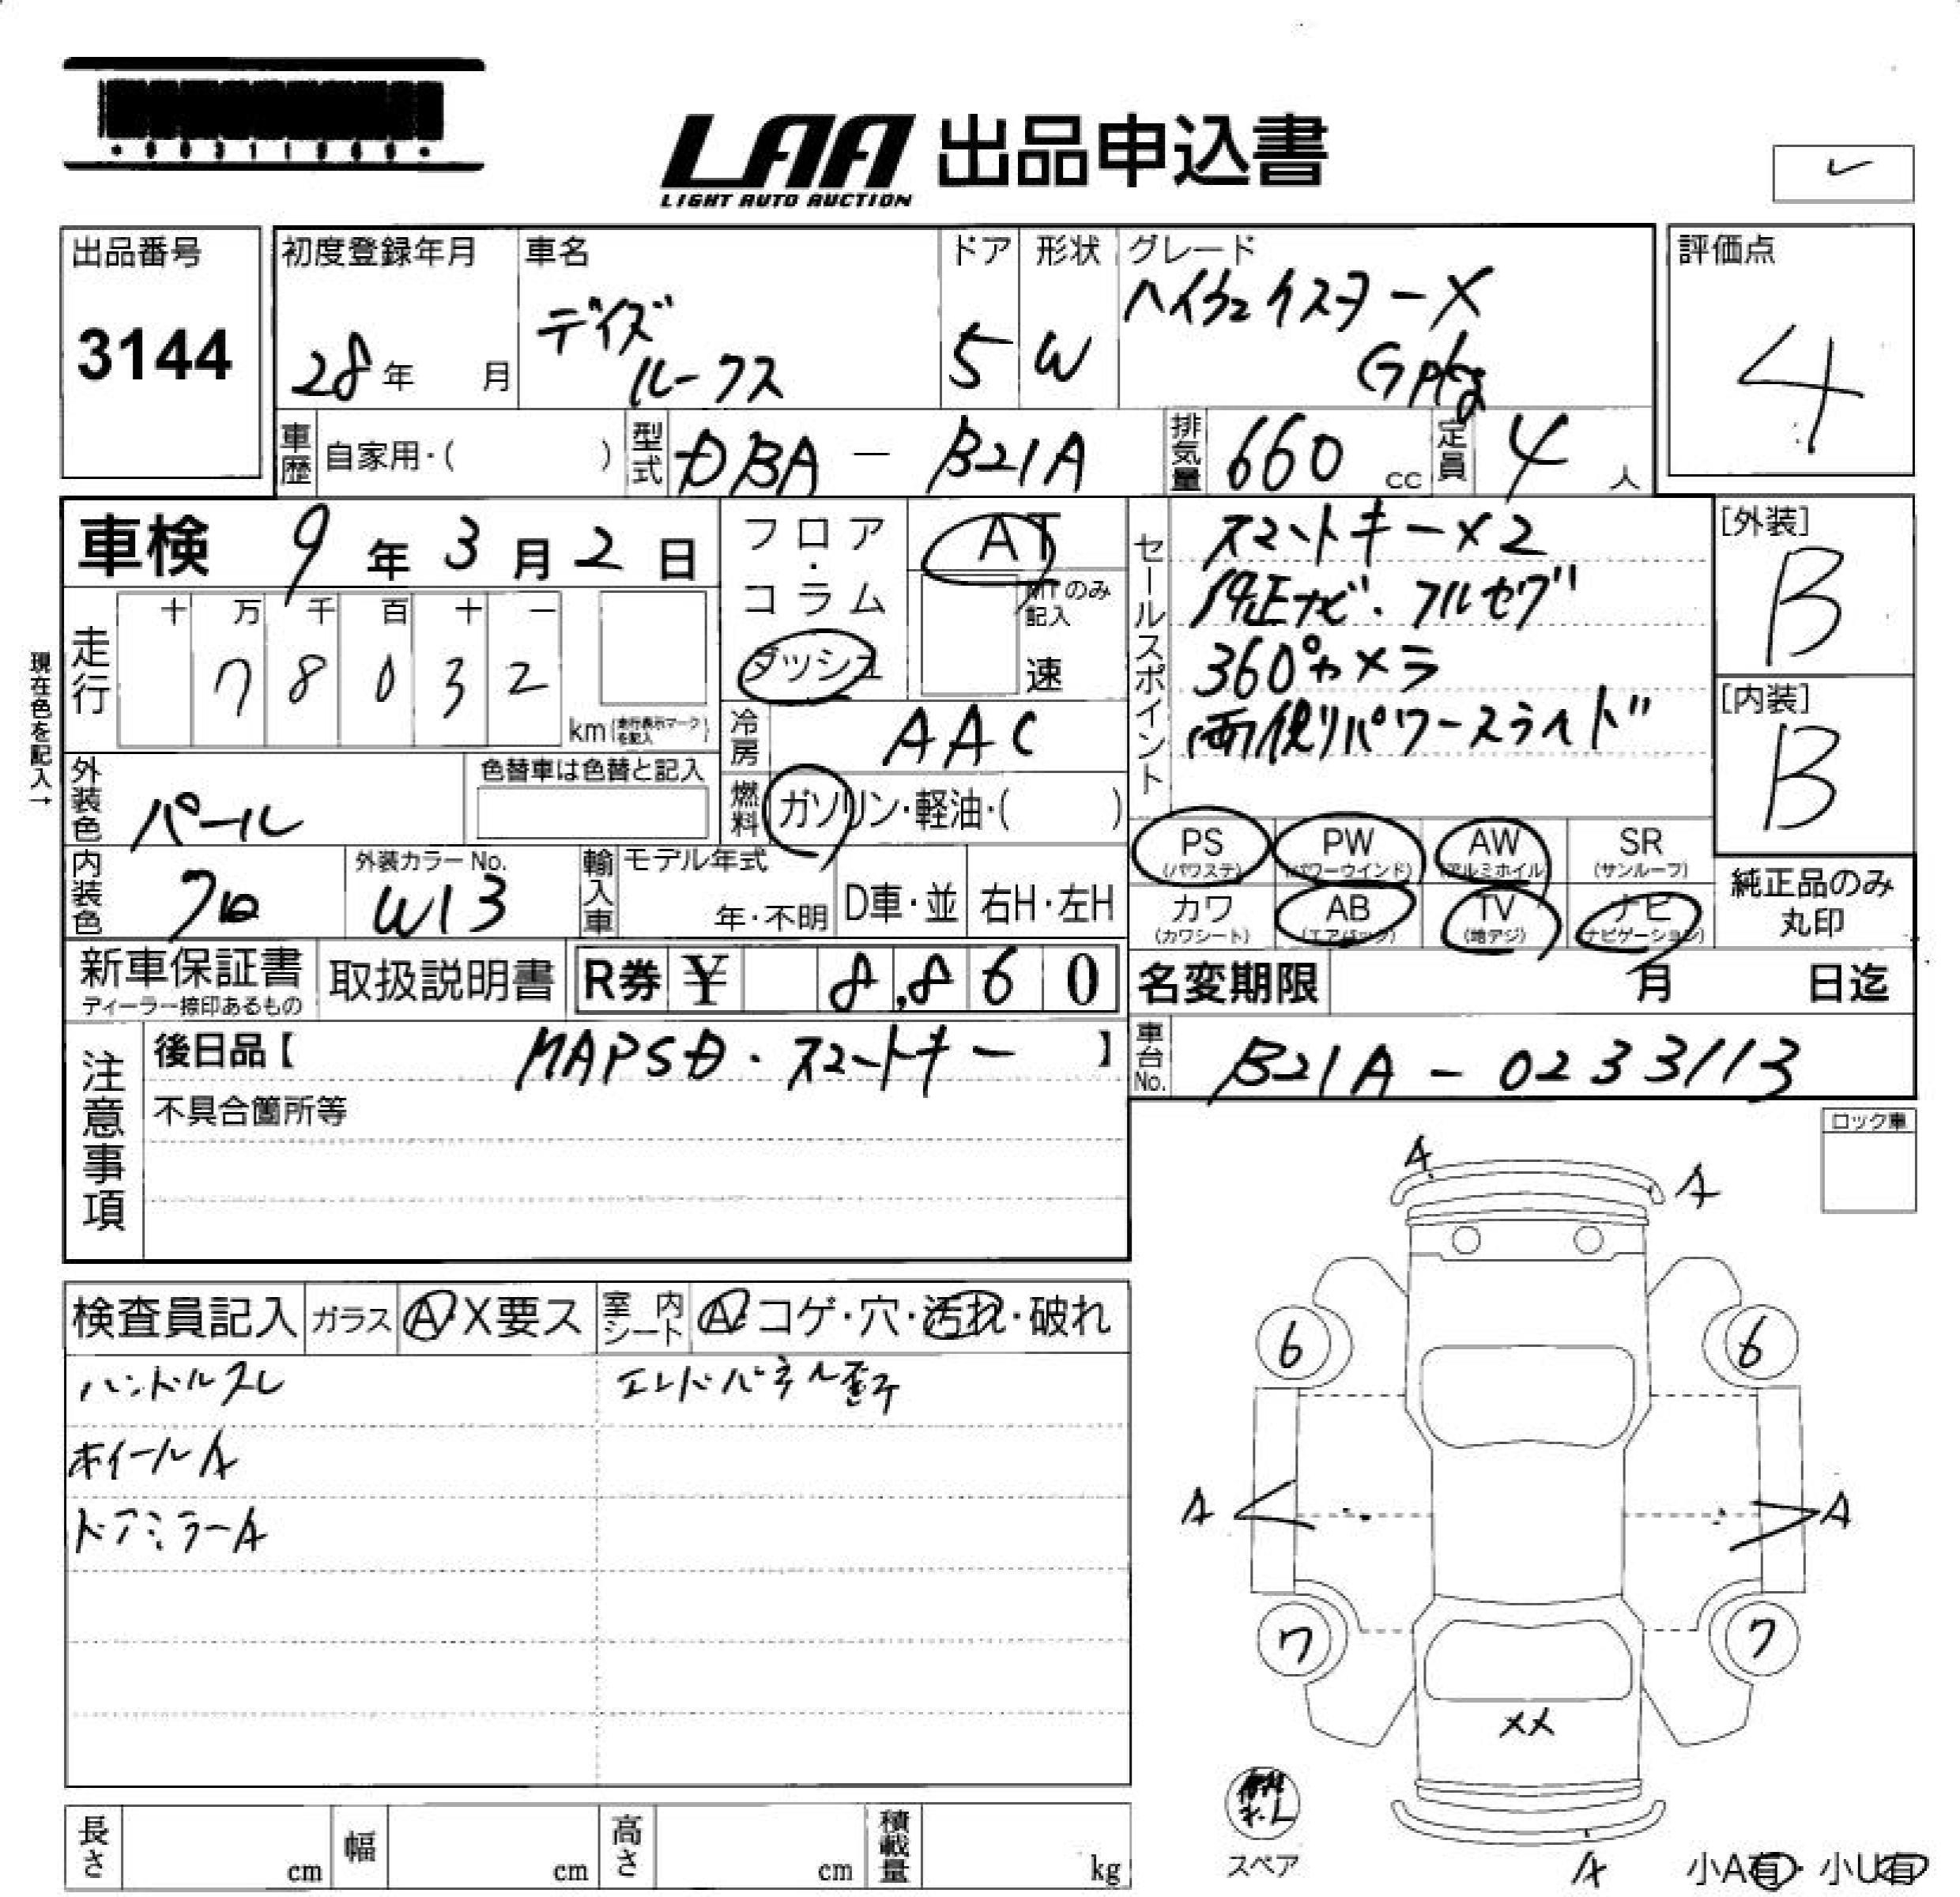 LAA 出品申込書
LIGHT AUTO AUCTION
出品番号
3144
初度登録年月
28年 月
車名
デイズ
ルークス
ドア
5
形状
W
グレード
ハイウェイスターX
Gpkg
評価点
4
車歴 自家用・( )
型式 DBA - B21A
排気量 660 cc
定員 4 人
車検 9年3月2日
現在色を記入→
走行
十 万 千 百 十 一
7 8 0 3 2
km (走行表示マークを記入)
フロア・コラム
ダッシュ
AT
MTのみ記入
速
冷房 AAC
燃料 ガソリン・軽油・( )
セールスポイント
スマートキー×2
純正ナビ・フルセグ
360°カメラ
両側パワースライド
[外装]
B
[内装]
B
外装色 パール
色替車は色替と記入
内装色 クロ
外装カラーNo.
W13
輸入車
モデル年式
年・不明
D車・並
右H・左H
PS (パワステ)
PW (パワーウインド)
AW (アルミホイル)
SR (サンルーフ)
カワ (カワシート)
AB (エアバック)
TV (地デジ)
ナビ (ナビゲーション)
純正品のみ
丸印
新車保証書
ディーラー捺印あるもの
取扱説明書
R券 ¥ 8,860
名変期限 月 日迄
車台No. B21A-0233113
注意事項
後日品【 MAPSD・スマートキー 】
不具合箇所等
ロック車
検査員記入
ガラス A・X要ス
室内シート A・コゲ・穴・汚れ・破れ
ハンドルスレ
エンドパネル歪
ホイールA
ドアミラーA
A
A
6
6
A
A
7
7
XX
スペア
A
小A有・小U有
長さ cm
幅 cm
高さ cm
積載量 kg